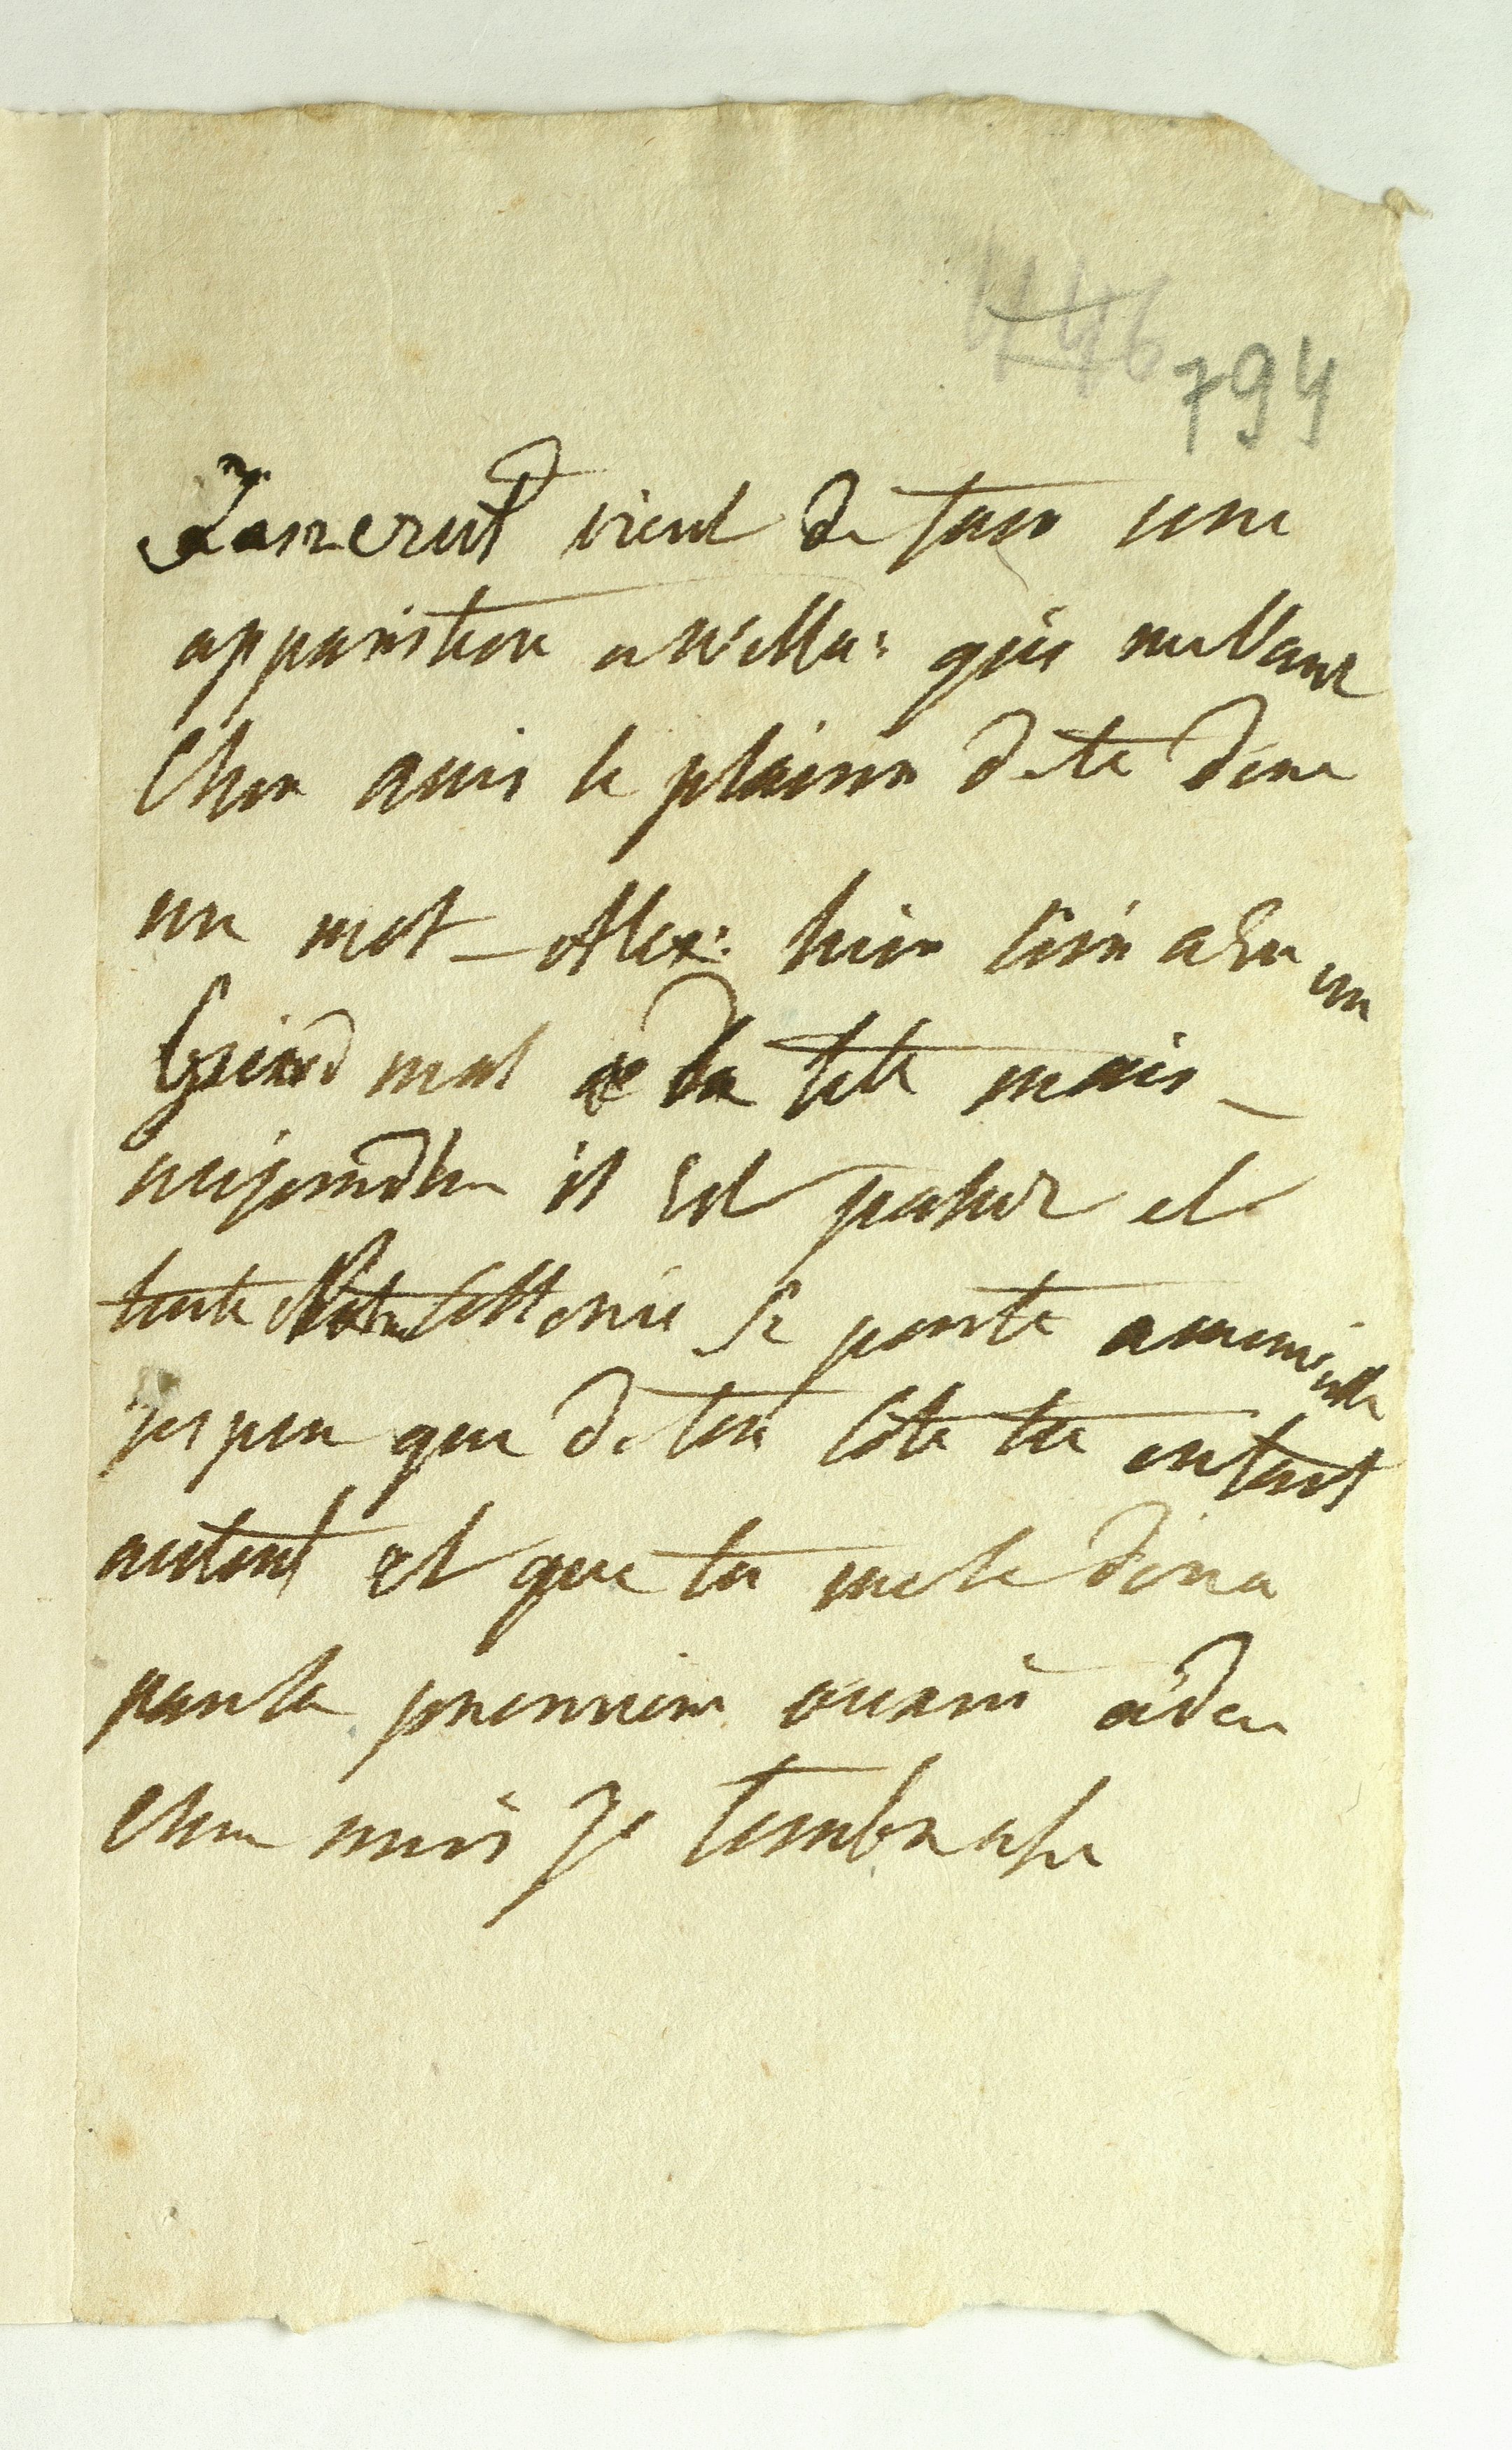 446 794
vient de faire une
apparition a Willa: qui me Vaut
Cher ami le plaisir de te dire
un mot - Alex: hier soir a Eu un
Grand mal de la tete mais -
aujourdhu il Est passez et
toute Notre Collonie Se porte a merveille
Jesper que de ton Cote tu en fait
autent et que tu me le dira
par la premiere ocasi adieu
Cher ami Je tembrasse